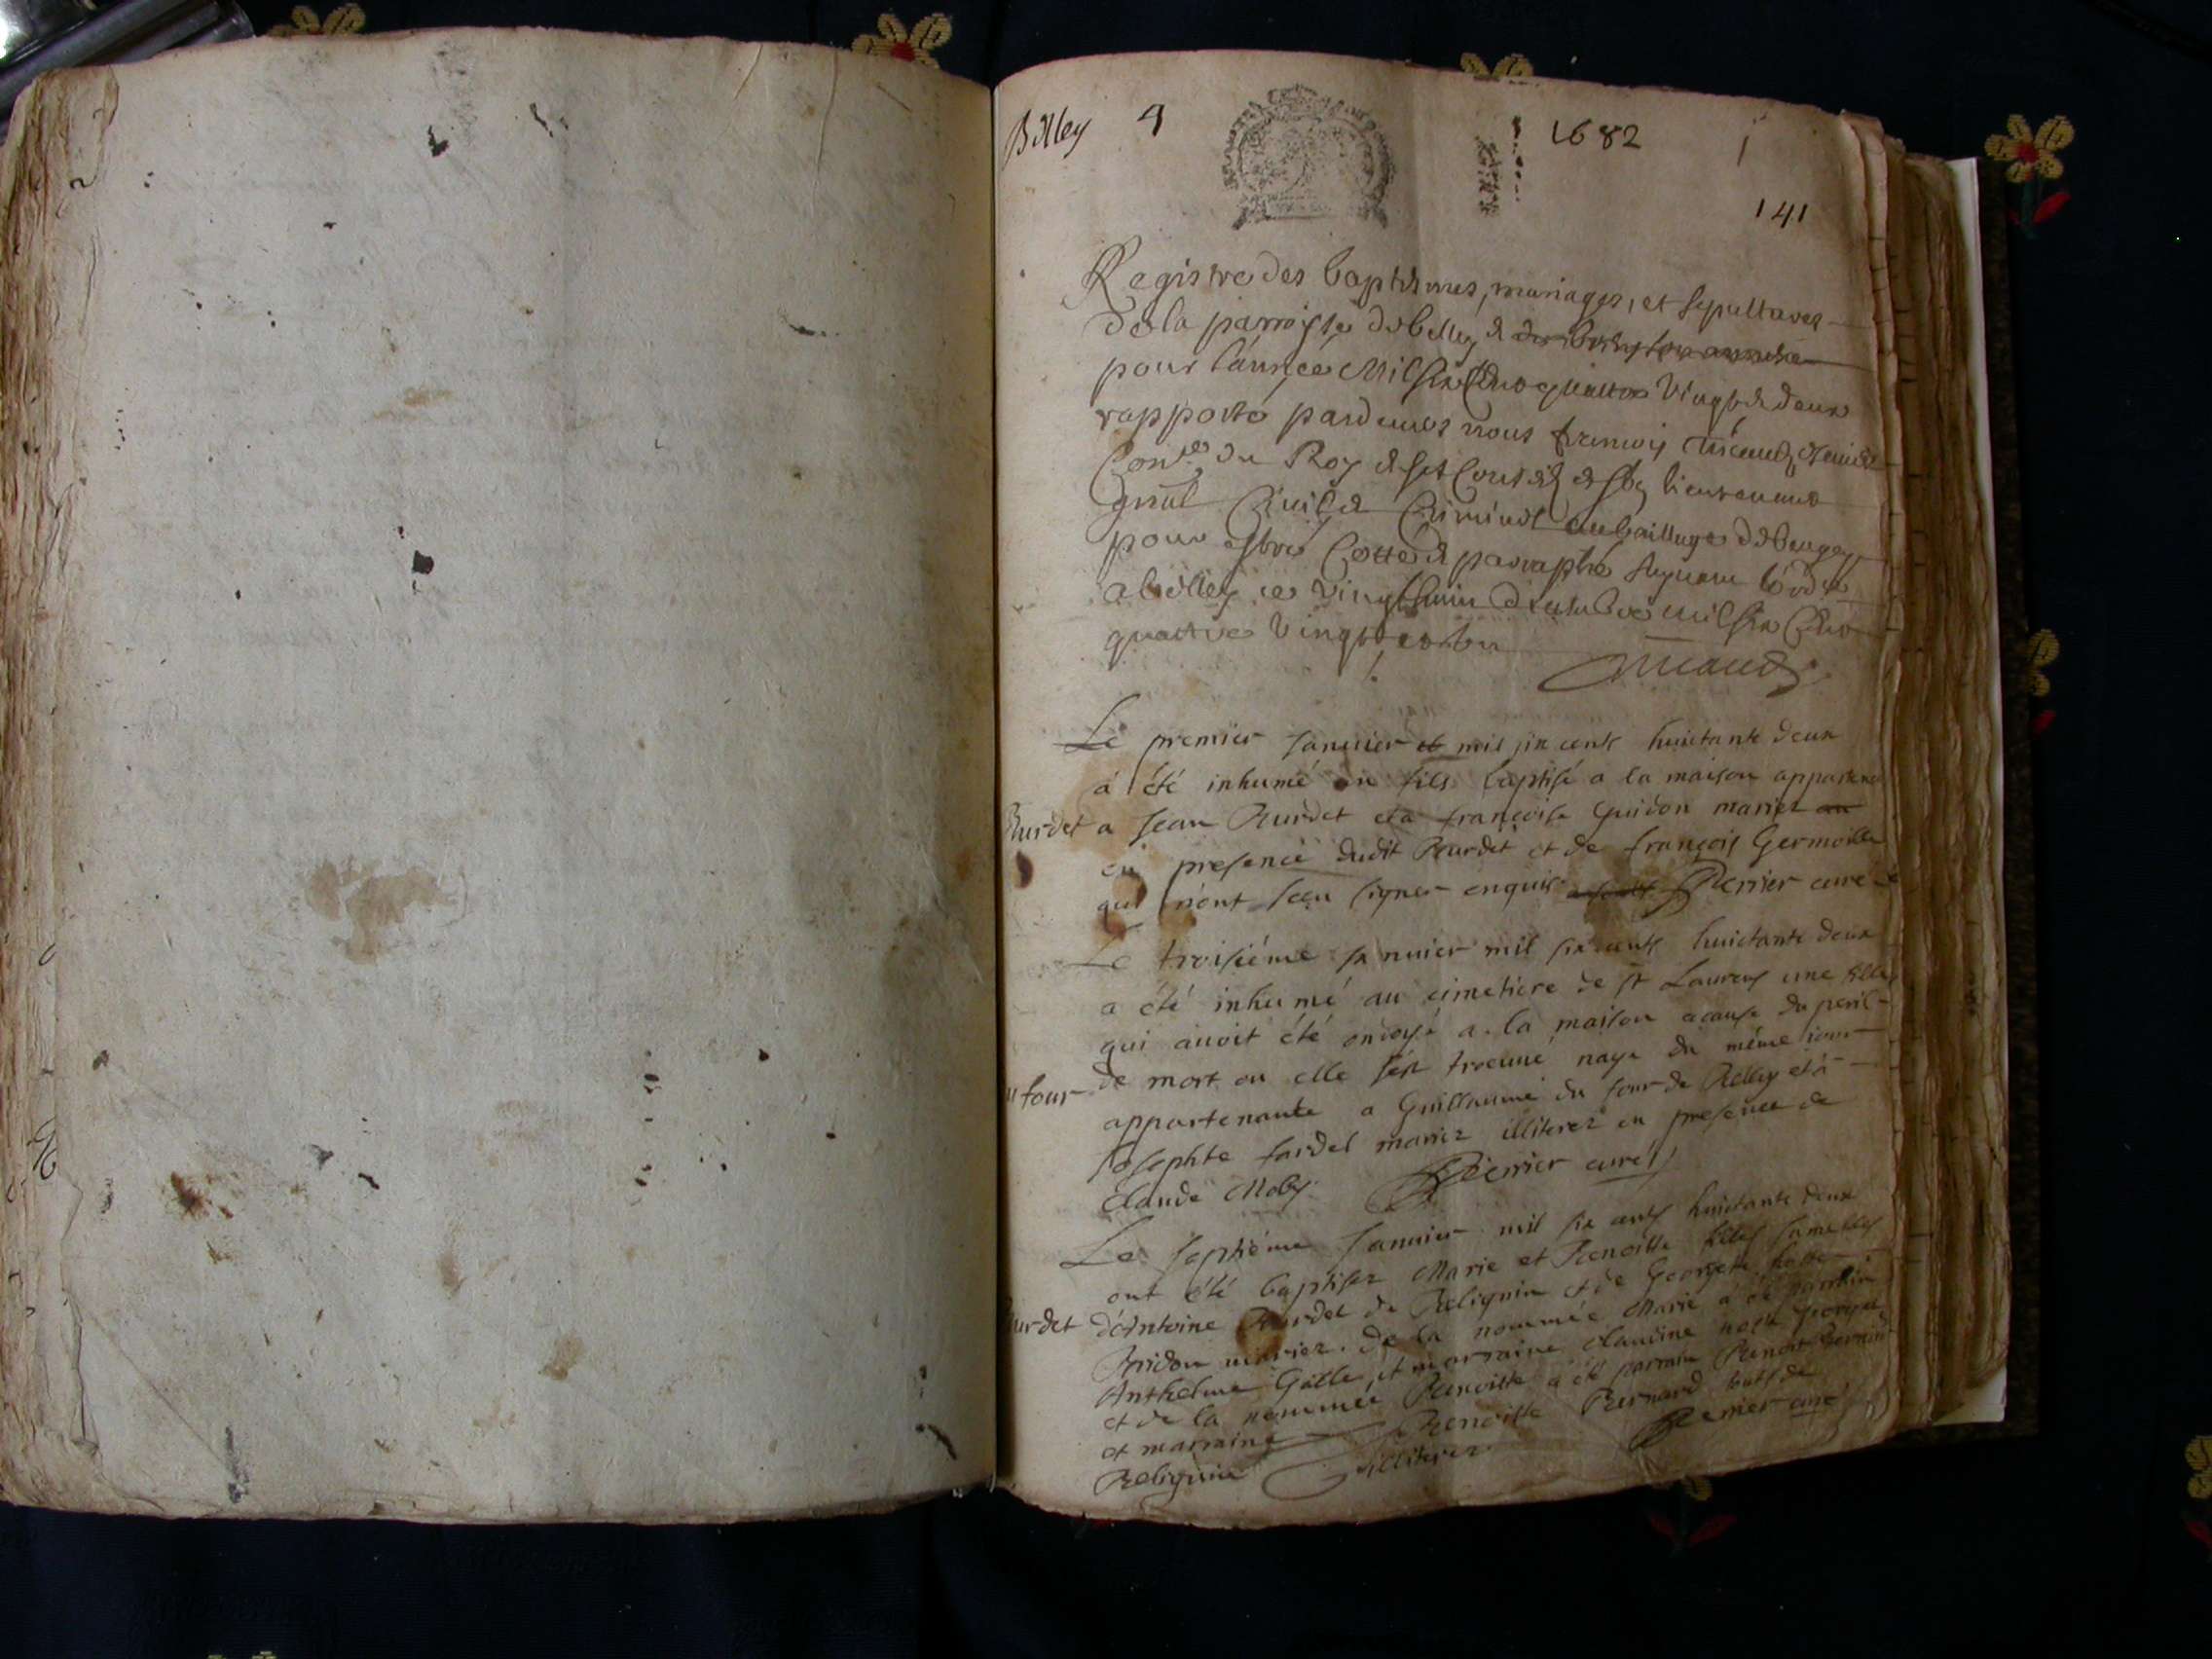 Billey 4 1682 1
141
Registre des baptismes, mariages, et sepultures
de la parroisse de belley &
pour l'année Mil six Cens quattre Vingt & deux
rapporté pardevant nous francois
Con.er du Roy & ses Conseils & son lieutenant
gnal Civil & Criminel au bailliage de beugey
pour estre Cotté & parraphé suyvant
a belley ce Vingt huit mil six Cens
quattre Vingt & un
Le premier Januier mil six cents huictante deux
a été inhumé un fils baptisé a la maison appartena
Burdet a Jean Burdet et a francoise Guidon mariez
en presence dudit Burdet et de françois Germoille
qui n'ont sceu signer enquis Perrier curé
Le troisiéme Januier mil six cents huictante deux
a été inhumé au cimetiere de st Laurens une fille
qui auoit été ondoyé a la maison a cause du peril
de mort ou elle s'est trouuué naye du même iour
four appartenante a Guillaume du four de Belley et a
Josephte fardel mariez illiterez en presence de
Claude Perrier curé
Le septiéme Januier mil six cents huictante deux
ont été baptisez Marie et Benoitte filles Jumelles
urdet d'Antoine Burdet de Belignin et de Georgette
mariez. de la nommée Marie a été parrain
Anthelme Gille et marraine Claudine
et de la nommée Benoitte a été parrain Benoit
et marraine Benoitte Bernard touts de
Belignin illiterez Perrier curé